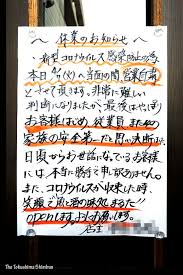 〜休業のお知らせ〜
新型コロナウイルス感染防止の為
本日 (火)〜当面の間、営業自粛
とさせて頂きます。非常に難しい
判断になりましたが、最後はやはり
お客様はじめ、従業員、
家族の安全第一だと思い決断
日頃からお世話になっているお客様
には、本当に勝手で申し訳ありません。
また、コロナウイルスが収束した時、
笑顔で
OPENしますよろしくお願いします。
店主
The Tokushima Shimbun